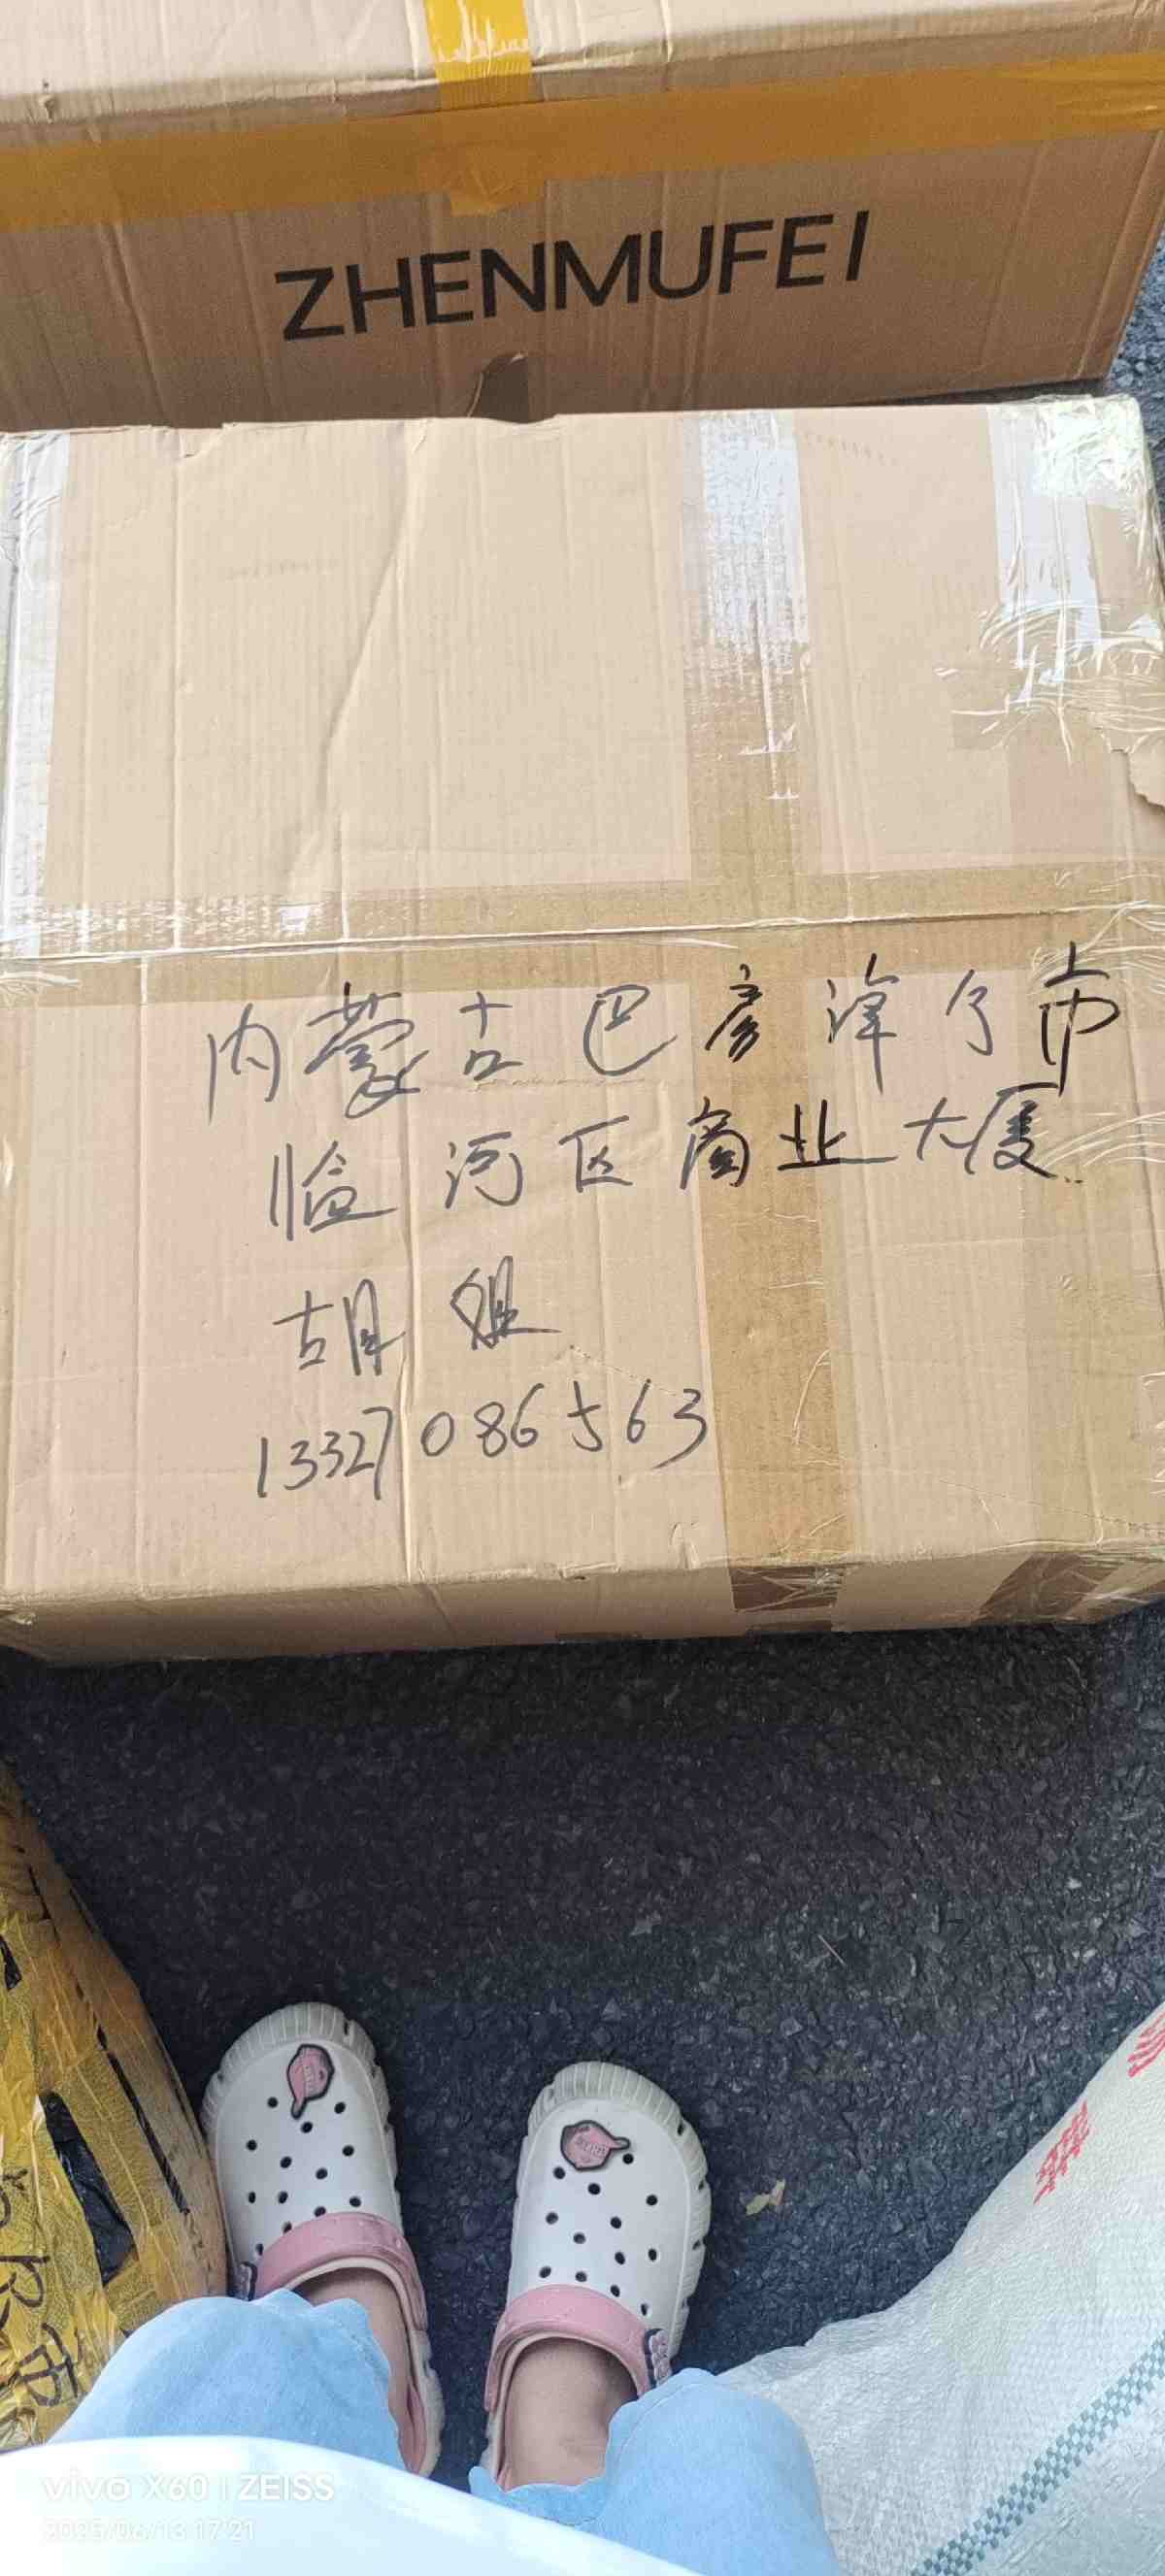 ZHENMUFEI
内蒙古巴彦淖尔市
临河区商业大厦
胡姐
13327086563
vivo X60 | ZEISS
2025/06/13 17:21